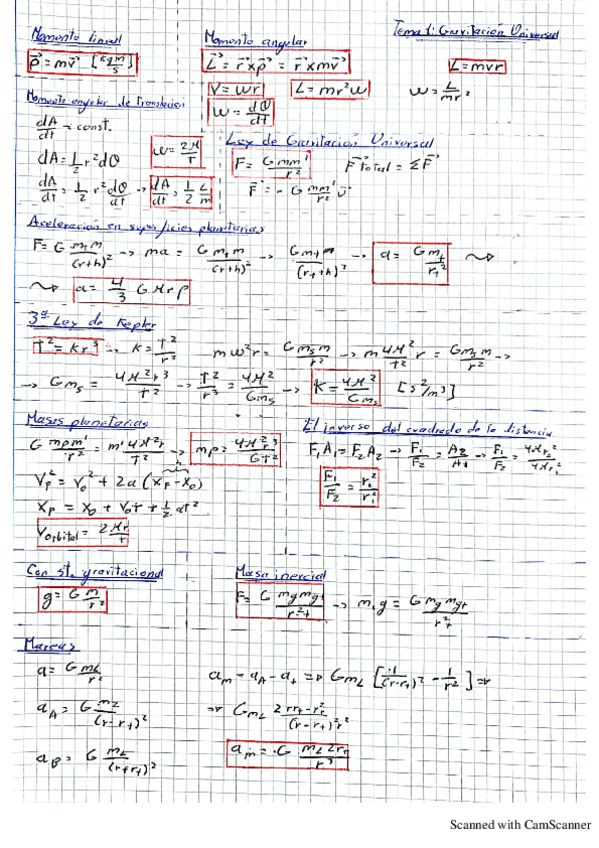 Tema 1: Gravitación Universal
Momento lineal
p⃗ = mv⃗ [kg m/s]
Momento angular
L⃗ = r⃗ x p⃗ = r⃗ x mv⃗
L = mvr
V = wr
L = mr²w
w = L/mr²
w = dθ/dt
Momento angular de translación
dA/dt = const.
dA = 1/2 r²dθ
w = 2π/T
dA/dt = 1/2 r² dθ/dt → dA/dt = 1/2 L/m
Ley de Gravitación Universal
F = G mm'/r²
F⃗ Total = Σ F⃗
F⃗ = - G mm'/r² u⃗
Aceleración en superficies planetarias
F = G m_t m/(r+h)² → ma = G m_t m/(r+h)² → G m_t/(r_t+h)² → a = G m_t/r_t²
a = 4/3 G π r ρ
3ª Ley de Kepler
T² = Kr³ → K = T²/r³
mw²r = G m_s m/r² → m 4π²/T² r = G m_s m/r² →
→ G m_s = 4π²r³/T² → T²/r³ = 4π²/G m_s → K = 4π²/G m_s [s²/m³]
Masas planetarias
G m_p m'/r² = m' 4π²r/T² → m_p = 4π²r³/GT²
V_F² = V_0² + 2a (X_F - X_0)
X_F = X_0 + V_0 t + 1/2 at²
V orbital = 2πr/T
El inverso del cuadrado de la distancia
F₁A₁ = F₂A₂ → F₁/F₂ = A₂/A₁ → F₁/F₂ = 4πr₂²/4πr₁²
F₁/F₂ = r₂²/r₁²
Const. gravitacional
g = G m/r²
Masa inercial
F = G m_g m_gt/r²t → m_i g = G m_g m_gt/r²t
Mareas
a = G m_L/r²
a_A = G m_L/(r-r_t)²
a_B = G m_L/(r+r_t)²
a_m = a_A - a_t ⇒ G m_L [1/(r-r_t)² - 1/r²] ⇒
⇒ G m_L 2rr_t - r_t²/(r-r_t)² r²
a_m = G m_L 2r_t/r³
Scanned with CamScanner